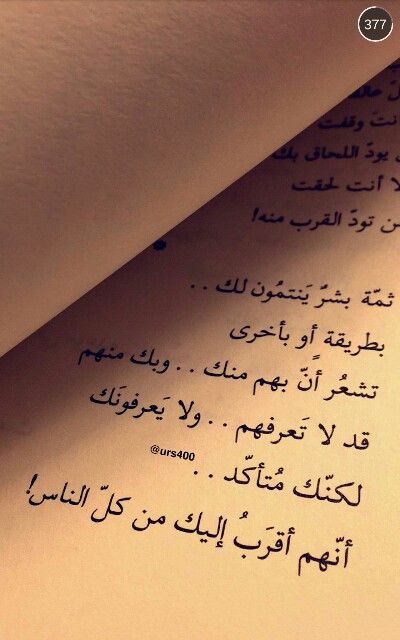 377
وقفت
يودّ اللحاق بك
لا أنت لحقت
من تودّ القرب منه!
ثمّة بشرٌ يَنتمُون لك . .
بطريقة أو بأخرى
تشعُر أنّ بهم منك . . وبك منهم
قد لا تَعرفهم . . ولا يَعرفونَك
@urs400
لكنّك مُتأكّد . .
أنّهم أقرَبُ إليك من كلّ الناس!